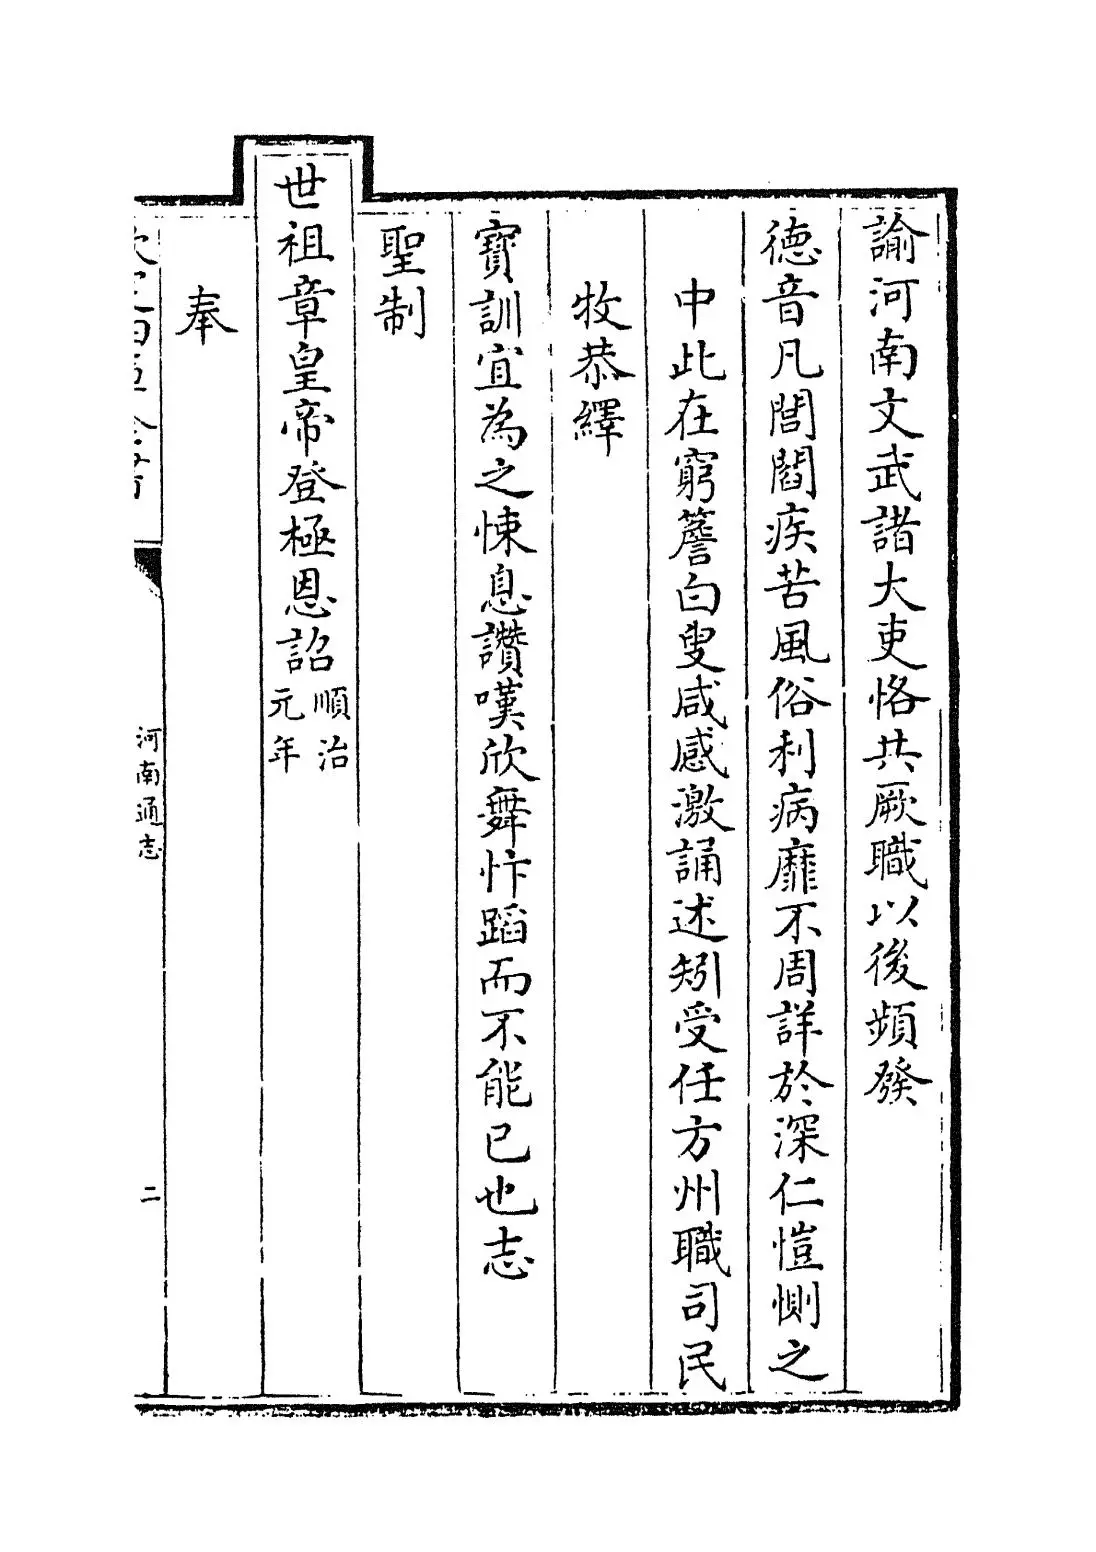 諭河南文武諸大吏恪共厥職以後頻發
德音凡閭閻疾苦風俗利病靡不周詳於深仁愷惻之
中此在窮簷白叟咸感激誦述矧受任方州職司民
牧恭繹
寶訓宜為之悚息讚嘆欣舞忭蹈而不能已也志
聖制
世祖章皇帝登極恩詔順治元年
奉
河南通志
二